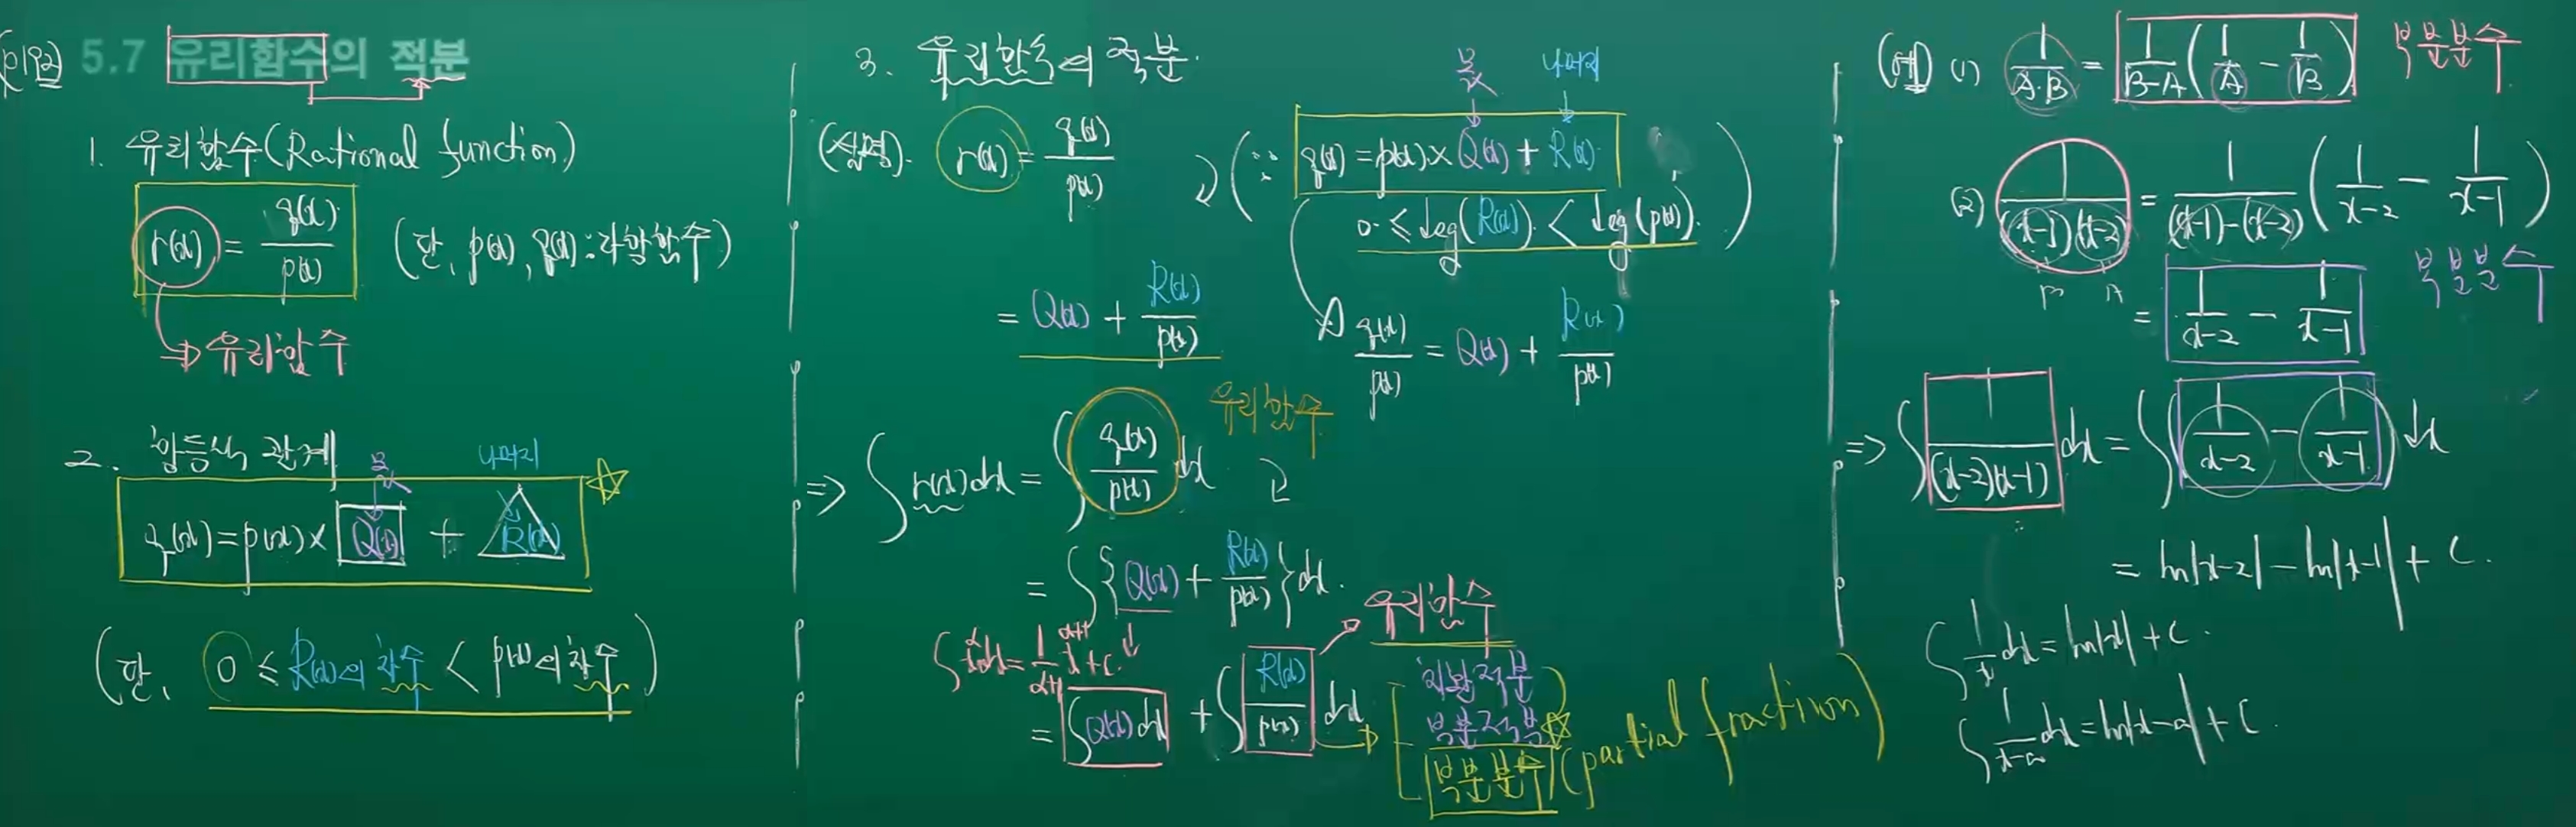 (p192) 5.7 유리함수의 적분
1. 유리함수(Rational function)
r(x) = q(x)/p(x) (단, p(x), q(x): 다항함수)
⇒ 유리함수
2. 항등식 관계
몫 나머지
q(x) = p(x) × Q(x) + R(x) ☆
(단, 0 ≤ R(x)의 차수 < p(x)의 차수)
3. 유리함수의 적분.
(설명). r(x) = q(x)/p(x)
몫 나머지
(∵ q(x) = p(x) × Q(x) + R(x)
0 ≤ deg(R(x)) < deg(p(x)).)
= Q(x) + R(x)/p(x)
q(x)/p(x) = Q(x) + R(x)/p(x)
유리함수
⇒ ∫ r(x) dx = ∫ q(x)/p(x) dx
= ∫ { Q(x) + R(x)/p(x) } dx.
유리함수
∫ x^α dx = 1/(α+1) x^(α+1) + C.
= ∫ Q(x) dx + ∫ R(x)/p(x) dx
치환적분
부분적분 ☆
부분분수 (partial fraction)
(예) (1) 1/(A·B) = 1/(B-A) (1/A - 1/B) 부분분수
(2) 1/((x-1)(x-2)) = 1/((x-1)-(x-2)) (1/(x-2) - 1/(x-1))
B A
부분분수
= 1/(x-2) - 1/(x-1)
⇒ ∫ 1/((x-2)(x-1)) dx = ∫ (1/(x-2) - 1/(x-1)) dx
= ln|x-2| - ln|x-1| + C.
∫ 1/x dx = ln|x| + C.
∫ 1/(x-a) dx = ln|x-a| + C.